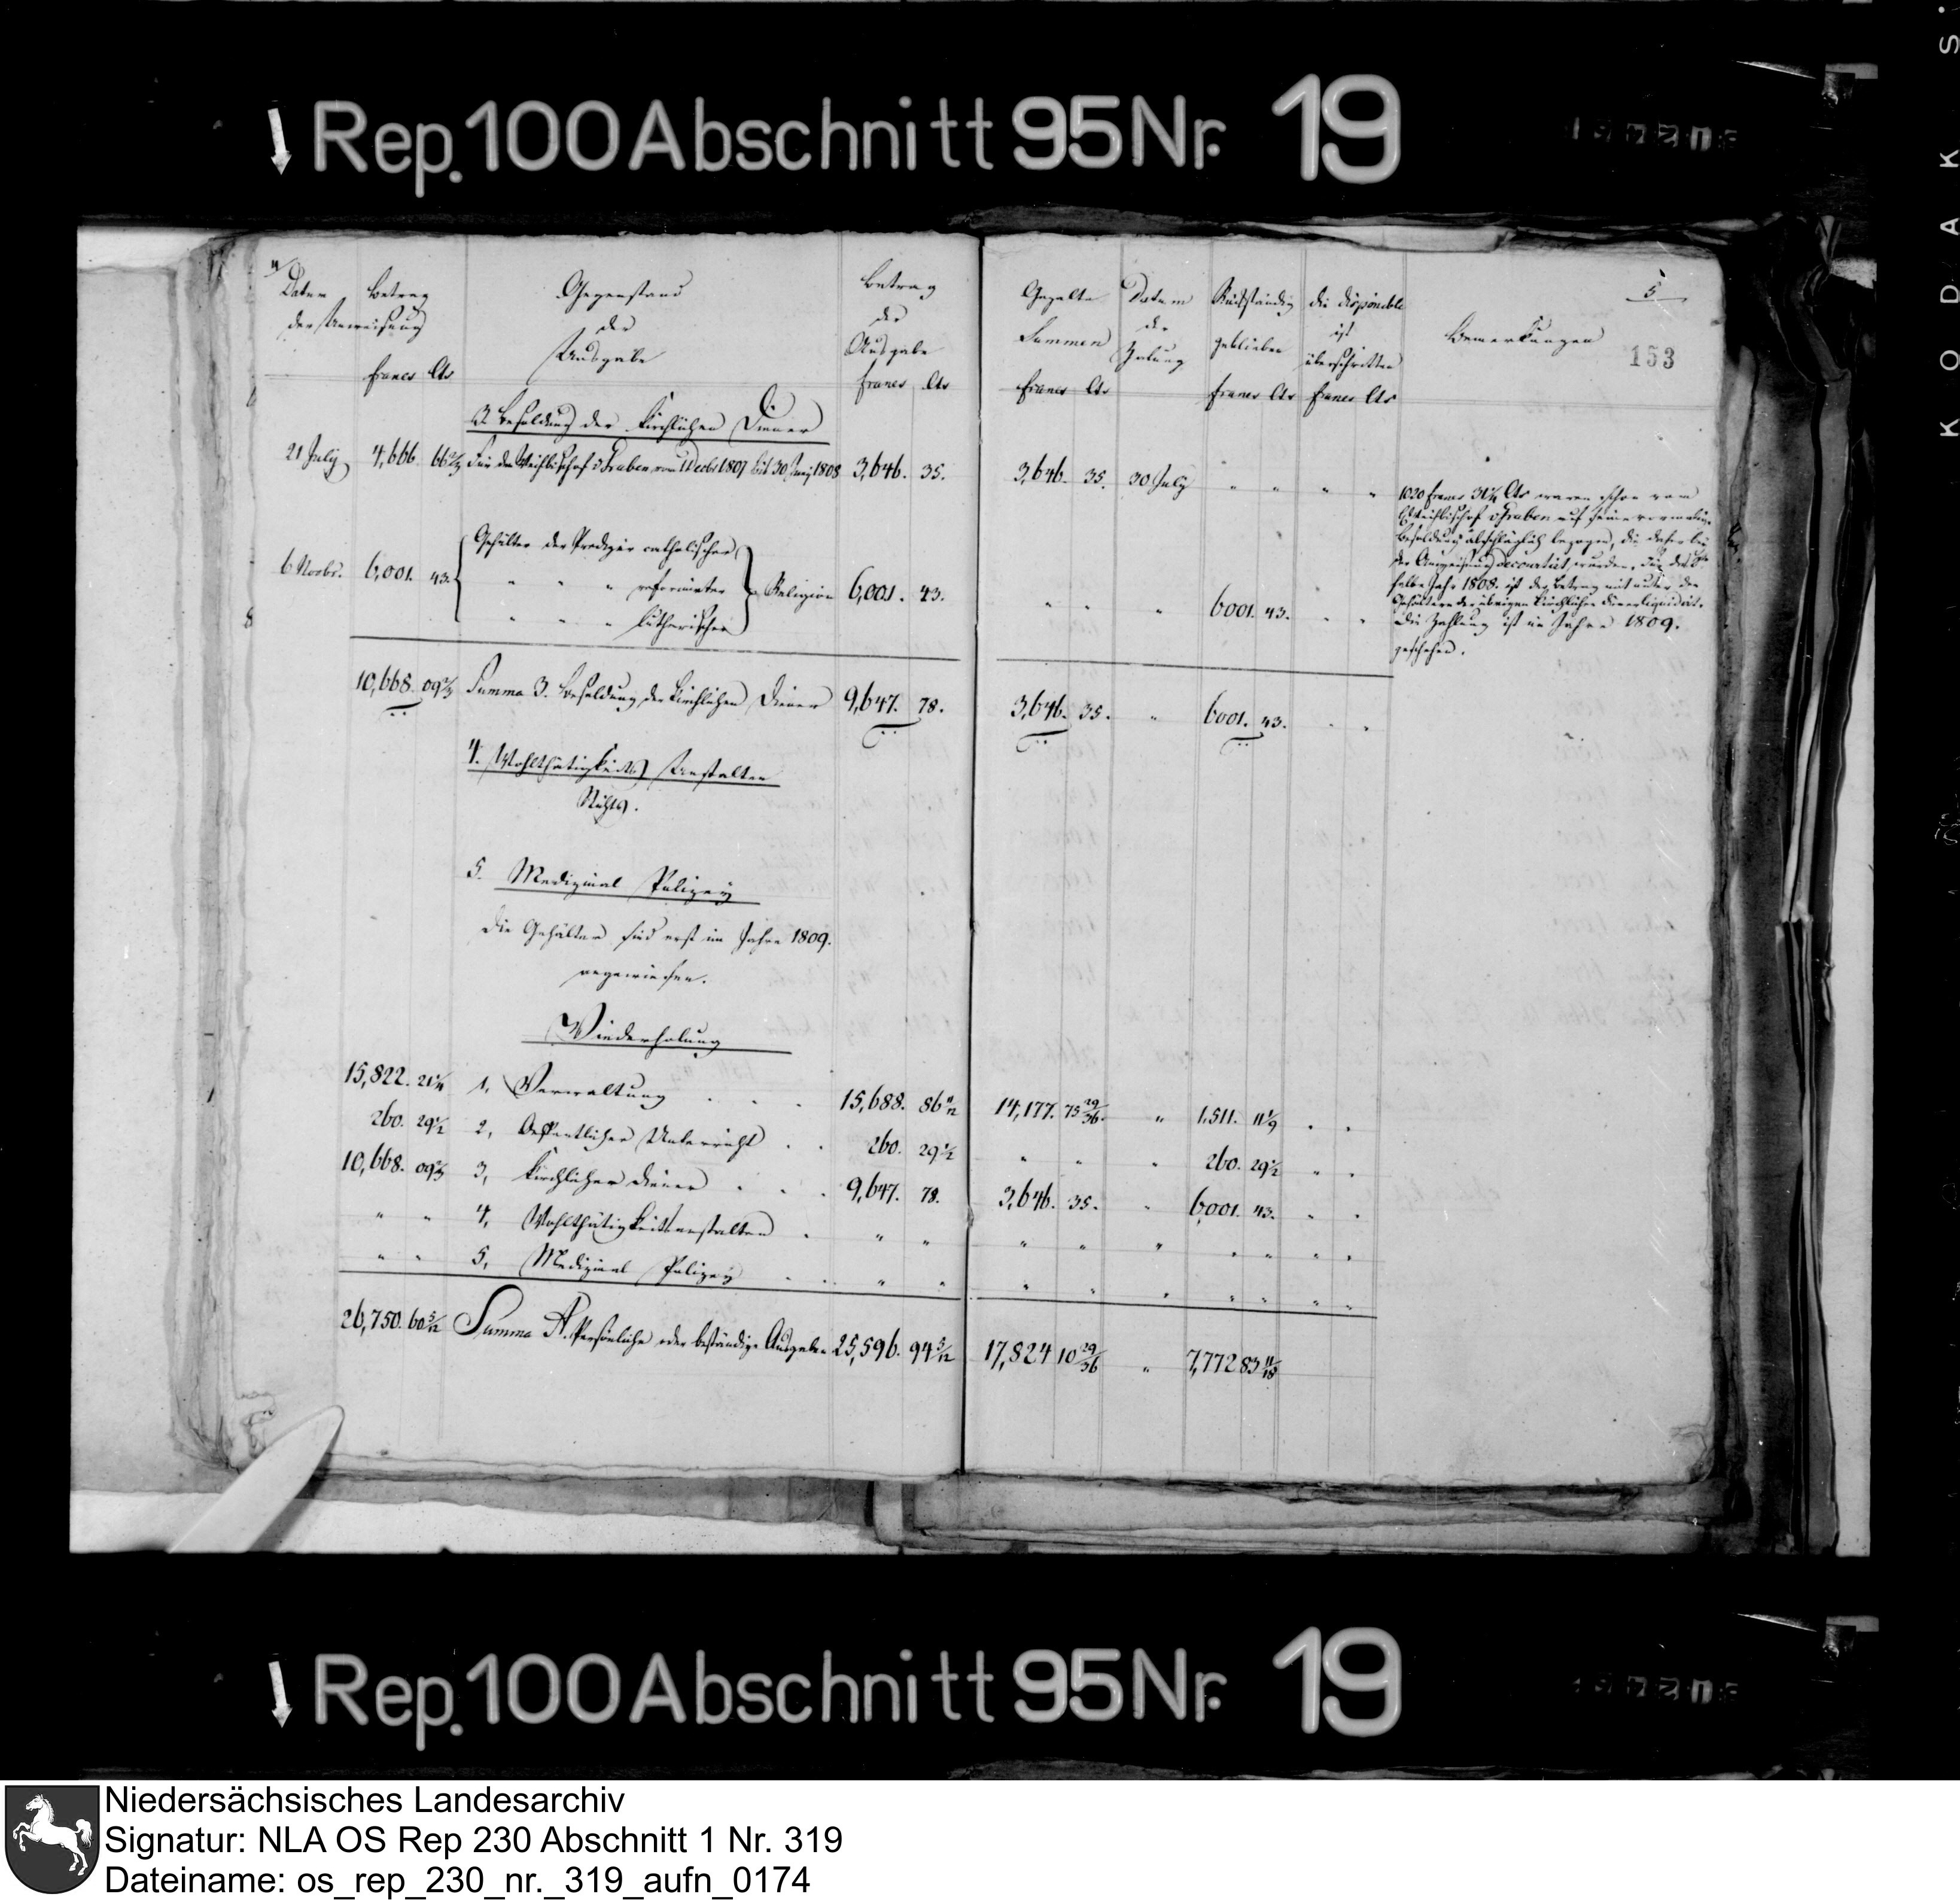 Rep. 100 Abschnitt 95 Nr. 19
KODAK S.
4
Datum Betrag
der Anweisung
francs Cts
Gegenstand
der
Ausgabe
Betrag
der
Ausgabe
francs Cts
Gezalte
Summen
francs Cts
Datum
der
Zalung
Rückständig
geblieben
francs Cts
die disponible
ist
überschritten
francs Cts
Bemerkungen
5
153
3. Besoldung der Kirchlichen Diener
21 July 4,666 66 2/3 Für den Weihbischof v Gruben vom 1 Decbr 1807 bis 30 Juny 1808 3,646. 35. 3,646. 35. 30 July " " " "
1020 francs 31 2/3 Cts waren schon vom
Weihbischof v Gruben auf seine vormalige
Besoldung abschläglich bezogen, die daher bei
der Anweisung decourtirt wurden. Für das
halbe Jahr 1808. ist der Betrag mit unter den
Gehältern der übrigen Kirchlichen Diener liquidirt.
Die Zahlung ist im Jahre 1809.
geschehen.
Gehälter der Prediger catholischer
6 Novbr. 6,001. 43. " " " reformirter Religion 6,001. 43. " " " 6001. 43. " "
" " " lutherischer
10,668. 09 2/3 Summa 3. Besoldung der Kirchlichen Diener 9,647. 78. 3,646. 35. " 6001. 43. " "
4. Wohlthätigkeits Anstalten
Nichts.
5. Medizinal Polizey
Die Gehälter sind erst im Jahre 1809.
angewiesen.
Wiederholung
15,822. 21 1/4 1, Verwaltung . . . 15,688. 86 11/12 14,177. 75 29/36. " 1,511. 11 1/9 " "
260. 29 1/2 2, Oeffentlicher Unterricht . . 260. 29 1/2 " " " 260. 29 1/2 " "
10,668. 09 2/3 3, Kirchlicher Diener . . . 9,647. 78. 3,646. 35. " 6,001. 43. " "
" " 4, Wohlthätigkeitsanstalten . " " " " " " " " "
" " 5, Medizinal Polizey . . " " " " " " " " "
26,750. 60 5/12 Summa A. Persönliche oder beständige Ausgaben 25,596. 94 5/12 17,824 10 29/36 " 7,772 83 11/18
Rep. 100 Abschnitt 95 Nr. 19
Niedersächsisches Landesarchiv
Signatur: NLA OS Rep 230 Abschnitt 1 Nr. 319
Dateiname: os_rep_230_nr._319_aufn_0174